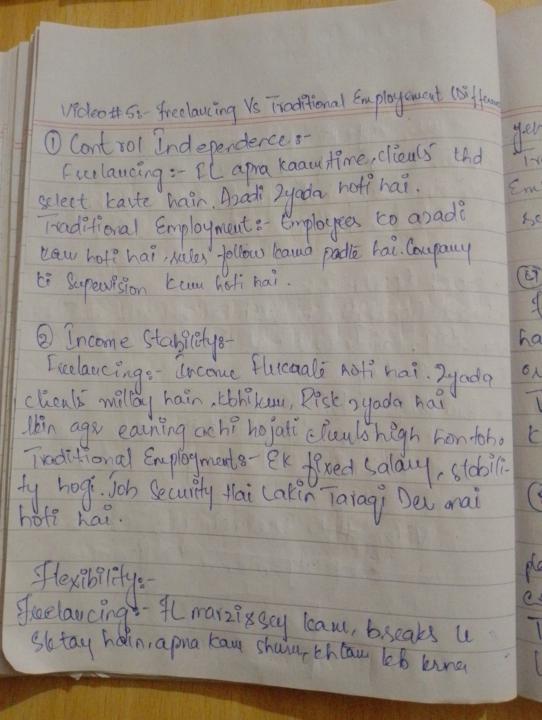 Video#5:- freelancing Vs Traditional Employement (Differen
① Control Independence:-
Freelancing:- FL apna kaam time, clients khd
select karte hain. Azadi zyada hoti hai.
Traditional Employment:- Employees ko azadi
kam hoti hai, rules follow karna padte hai. Company
ki Supervision kam hoti hai.
② Income Stability:-
Freelancing:- Income hoti hai. zyada
clients miltay hain, kbhi kum, Risk zyada hai
lkin agr earning achi hojati clients high hon to ho
Traditional Employment:- Ek fixed salary, stabili-
ty hogi. Job Security Hai Lakin Taraqi Der mai
hoti hai.
Flexibility:-
Freelancing:- FL marzi sey kam, breaks le
sktay hain, apna kam shuru, khtam kb krna
yer
Tr
Em
se
ha
or
T
K
pla
T